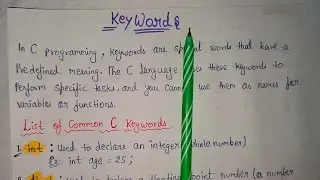 KeyWords
In C programming, keywords are special words that have a
Predefined meaning. The C language uses these keywords to
perform specific tasks, and you cannot use them as names for
variables or functions.
List of Common C Keywords
1. int : Used to declare an integer (whole number)
Ex: int age = 25;
Used to declare a floating point number (a number